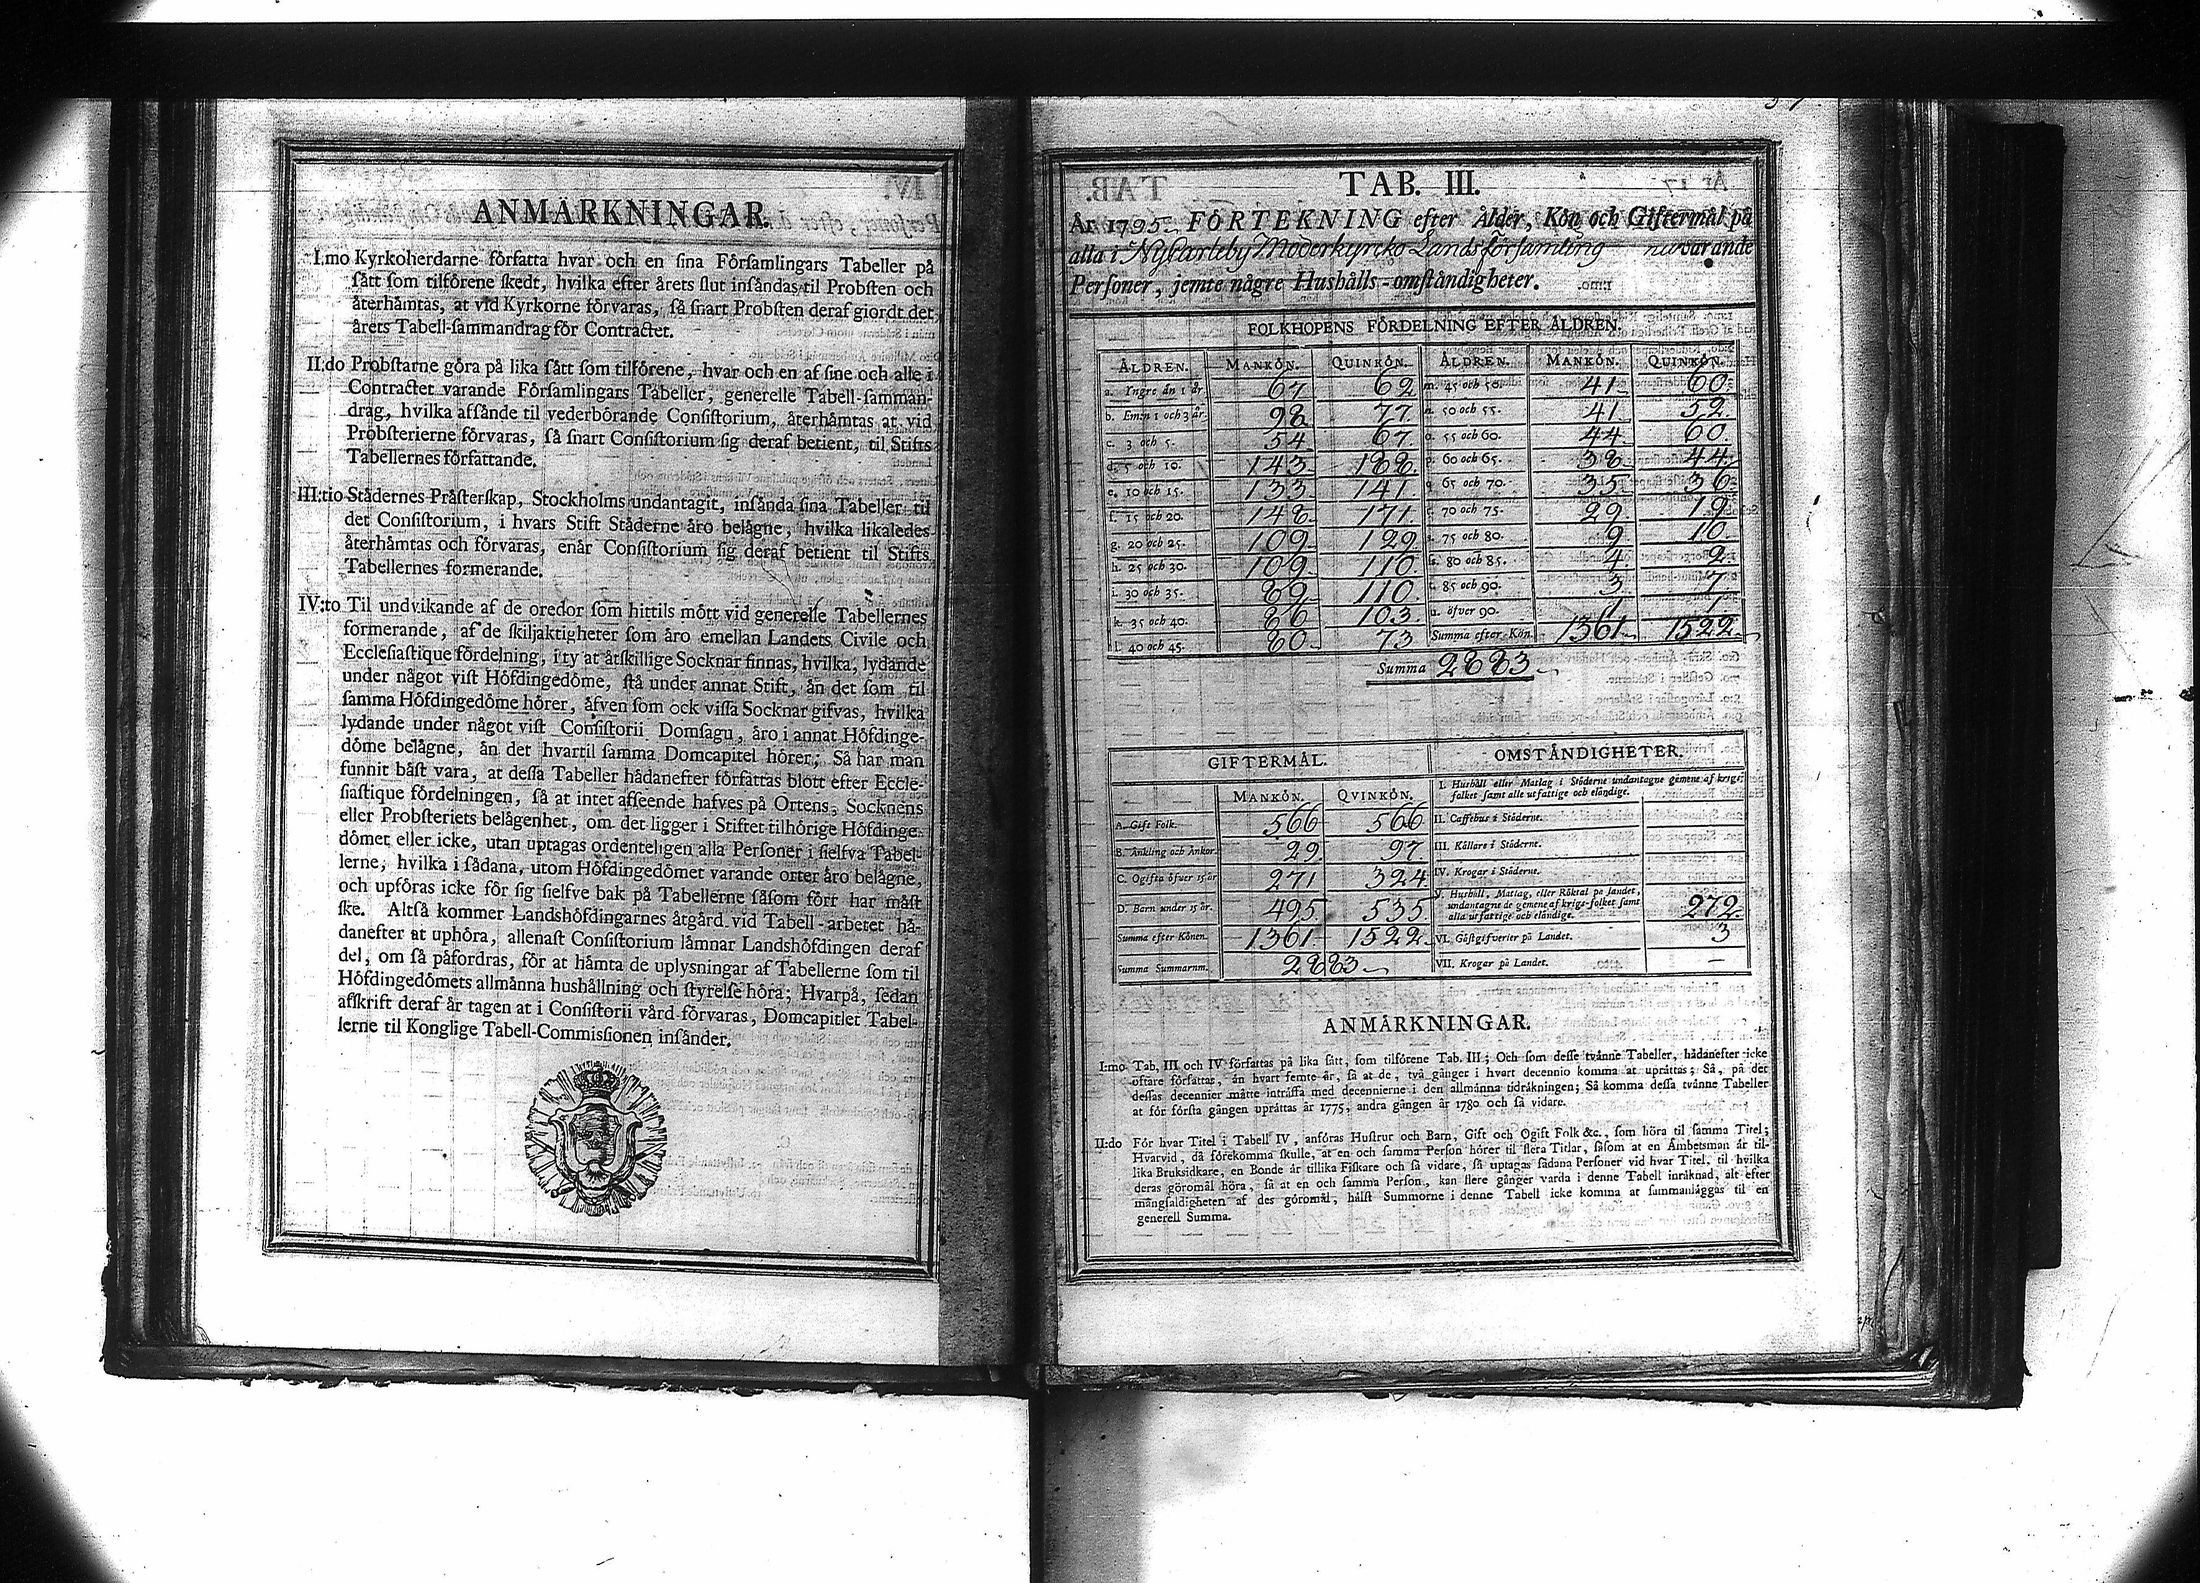 ANMÅRKNINGAR.
I.mo Kyrkoherdarne författa hvar och en sina Församlingars Tabeller på
sått som tilförene skedt, hvilka efter årets slut insåndas til Probsten och
återhåmtas, at vid Kyrkorne förvaras, så snart Probsten deraf giordt det
årets Tabell-sammandrag för Contractet.
II:do Probstarne göra på lika sått som tilförene, hvar och en af sine och alle i
Contractet varande Församlingars Tabeller, generelle Tabell-samman-
drag, hvilka afsånde til vederbörande Consistorium, återhåmtas at vid
Probsterierne förvaras, så snart Consistorium sig deraf betient, til Stifts
Tabellernes författande.
III:tio Stådernes Pråsterskap, Stockholms undantagit, insånda sina Tabeller til
det Consistorium, i hvars Stift Ståderne åro belågne, hvilka likaledes
återhåmtas och förvaras, enår Consistorium sig deraf betient til Stifts
Tabellernes formerande.
IV:to Til undvikande af de oredor som hittils mött vid generelle Tabellernes
formerande, af de skiljaktigheter som åro emellan Landets Civile och
Ecclesiastique fördelning, i ty at åtskillige Socknar finnas, hvilka, lydande
under något vist Höfdingedöme, stå under annat Stift, ån det som til
samma Höfdingedöme hörer, åfven som ock vissa Socknar gifvas, hvilka
lydande under något vist Consistorii Domsagu, åro i annat Höfdinge-
döme belågne, ån det hvartil samma Domcapitel hörer; Så har man
funnit båst vara, at dessa Tabeller hådanefter författas blott efter Eccle-
siastique fördelningen, så at intet afseende hafves på Ortens, Socknens
eller Probsteriets belågenhet, om det ligger i Stiftet tilhörige Höfdinge-
dömet eller icke, utan uptagas ordenteligen alla Personer i sielfva Tabel-
lerne, hvilka i sådana, utom Höfdingedömet varande orter åro belågne,
och upföras icke för sig sielfve bak på Tabellerne såsom förr har måst
ske. Altså kommer Landshöfdingarnes åtgård vid Tabell-arbetet hå-
danefter at uphöra, allenast Consistorium låmnar Landshöfdingen deraf
del, om så påfordras, för at håmta de uplysningar af Tabellerne som til
Höfdingedömets allmånna hushållning och styrelse höra; Hvarpå, sedan
afskrift deraf år tagen at i Consistorii vård förvaras, Domcapitlet Tabel-
lerne til Konglige Tabell-Commissionen insånder.
TAB. III.
År 1795 FÖRTEKNING efter Ålder, Kön och Giftermål på
alla i Nykarleby Moderkyrcko Landsförsamling nurvarande
Personer, jemte några Hushålls-omståndigheter.
FOLKHOPENS FÖRDELNING EFTER ÅLDREN.
ÅLDREN. MANKÖN. QUINKÖN. ÅLDREN. MANKÖN. QUINKÖN.
a. Yngre ån 1 år 67 62 m. 45 och 50. 41 60
b. Emin 1 och 3 år. 98 77 n. 50 och 55. 41 52
c. 3 och 5. 54 67 o. 55 och 60. 44 60
d. 5 och 10. 143 188 p. 60 och 65. 38 44
e. 10 och 15. 133 141 q. 65 och 70. 35 36
f. 15 och 20. 148 171 r. 70 och 75. 29 19
g. 20 och 25. 109 129 s. 75 och 80. 9 10
h. 25 och 30. 109 110 80 och 85. 4 2
i. 30 och 35. 89 110 t. 85 och 90. 3 7
k. 35 och 40. 86 103 u. öfver 90. 1 1
l. 40 och 45. 80 73 Summa efter Kön. 1361 1522
Summa 2883
GIFTERMÅL. OMSTÅNDIGHETER.
MANKÖN. QVINKÖN. I. Hushåll eller Matlag i Ståderne undantagne gemene af krigs-
folket samt alle utfattige och elåndige.
A. Gift Folk. 566 566 II. Caffehus i Ståderne.
B. Ånkling och Ånkor. 29 97 III. Källare i Ståderne.
C. Ogifta öfver 15 år 271 324 IV. Krogar i Ståderne.
D. Barn under 15 år. 495 535 V. Hushåll, Matlag, eller Röktal på landet,
undantagne de gemene af krigs-folket samt
alla utfattige och elåndige. 272
Summa efter Könen. 1361 1522 VI. Gåstgifverier på Landet. 3
Summa Summarum. 2883 VII. Krogar på Landet. —
ANMÅRKNINGAR.
I:mo Tab. III och IV författas på lika sått, som tilförene Tab. III; Och som desse tvånne Tabeller, hådanefter icke
oftare författas, ån hvart femte år, så at de, två gånger i hvart decennio komma at upråttas; Så, på det
dessas decennier måtte intråffa med decennierne i den allmånna tidråkningen; Så komma dessa tvånne Tabeller
at för första gången upråttas år 1775, andra gången år 1780 och så vidare.
II:do För hvar Titel i Tabell IV, anföras Hustrur och Barn, Gift och Ogift Folk &c., som höra til samma Titel;
Hvarvid, då förekomma skulle, at en och samma Person hörer til flera Titlar, såsom at en Åmbetsman år til-
lika Bruksidkare, en Bonde år tillika Fiskare och så vidare, så uptagas sådana Personer vid hvar Titel, til hvilka
deras göromål höra, så at en och samma Person, kan flere gånger varda i denne Tabell inråknad, alt efter
mångfaldigheten af des göromål, hålst Summorne i denne Tabell icke komma at summanlåggas til en
generell Summa.